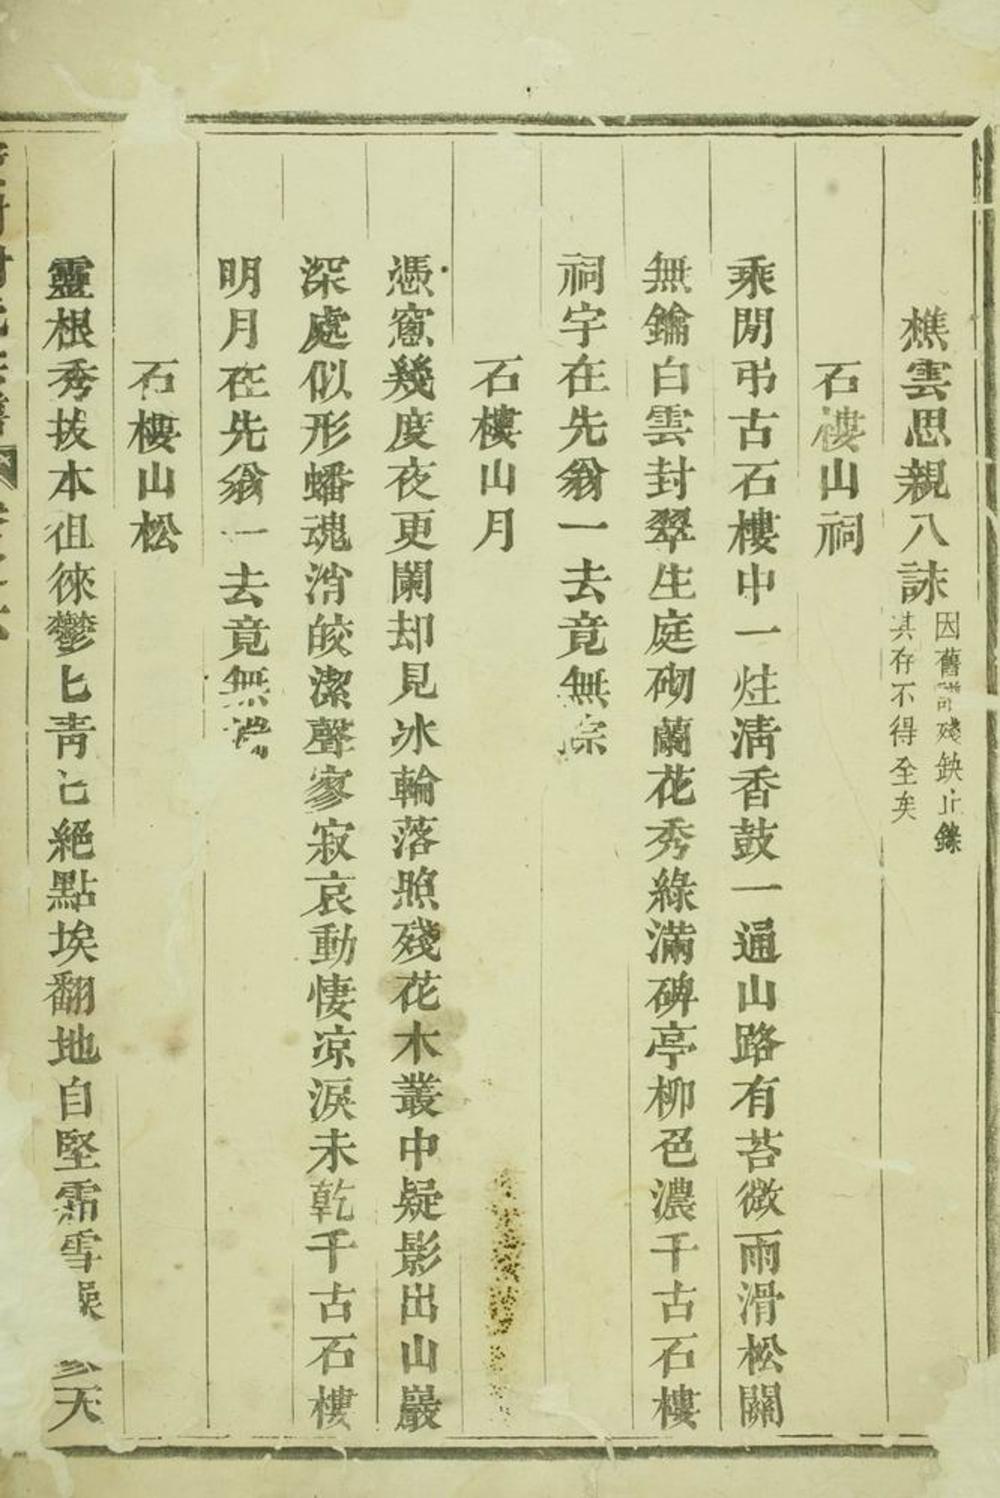 樵雲思親八詠
因舊譜殘缺止錄
其存不得全矣
石樓山祠
乘閒弔古石樓中一炷清香鼓一通山路有苔微雨滑松關
無鑰白雲封翠生庭砌蘭花秀綠滿碑亭柳色濃千古石樓
祠宇在先翁一去竟無踪
石樓山月
憑窻幾度夜更闌却見氷輪落照殘花木叢中疑影出山巖
深處似形蟠魂消皎潔聲寥寂哀動悽凉淚未乾千古石樓
明月在先翁一去竟無
石樓山松
靈根秀拔本徂徠鬱匕青匕絕點埃翻地自堅霜雪 天